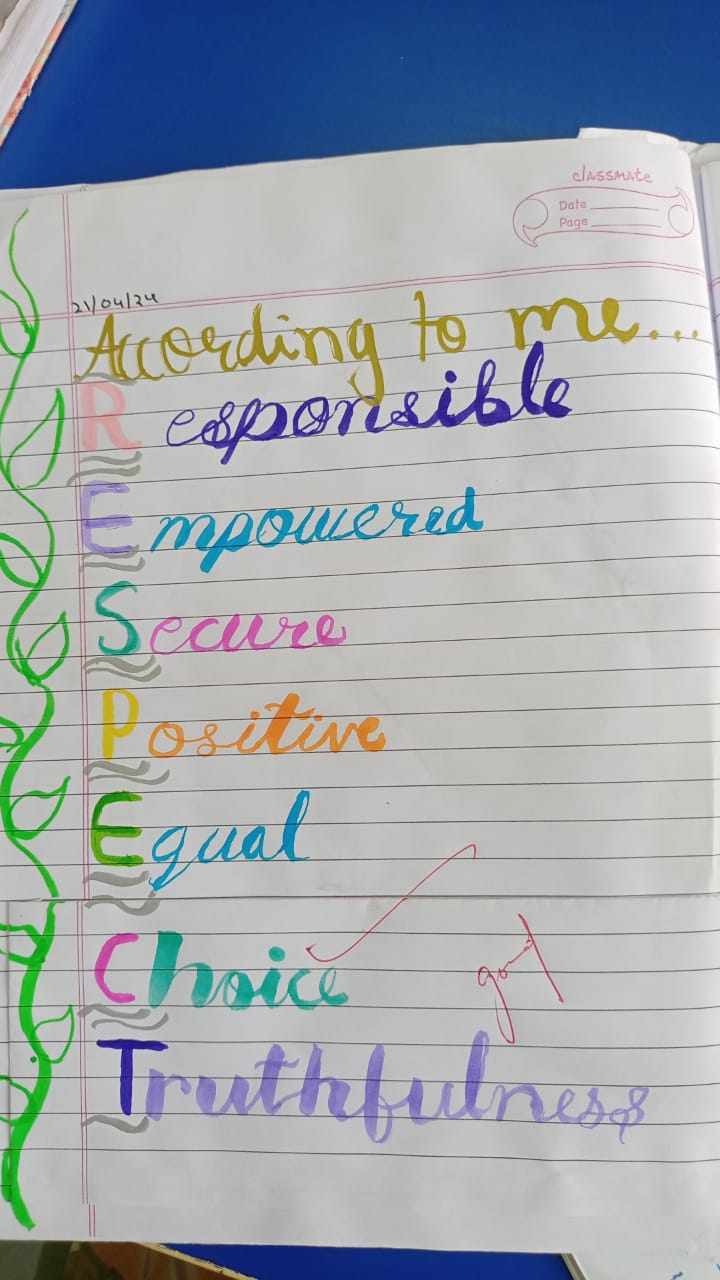 classmate
Date
Page
21/04/24
According to me...
Responsible
Empowered
Secure
Positive
Equal
Choice
good
Truthfulness